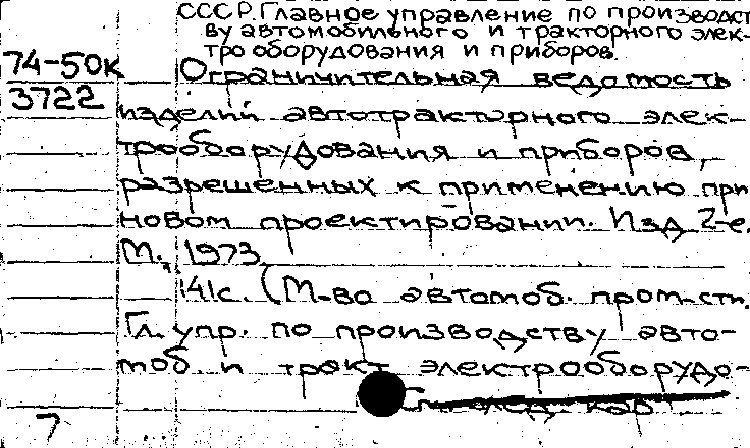 СССР. Главное управление по производст
ву автомобильного и тракторного элек-
трооборудования и приборов.
74-50к
3722
Ограничительная ведомость
изделий автотракторного элек-
трооборудования и приборов,
разрешенных к применению при
новом проектировании. Изд 2-е.
М., 1973
141с. (М-во автомоб. пром-сти.
Гл. упр. по производству авто-
моб. и тракт электрооборудо-
7